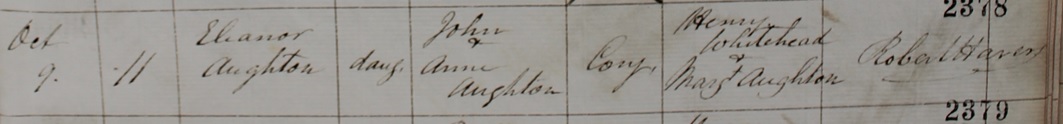 2378
Oct
9.
11
Eleanor
Aughton
daug.
John
&
Anne
Aughton
Conj.
Henry
Whitehead
&
Margt Aughton
Robert Havers
2379